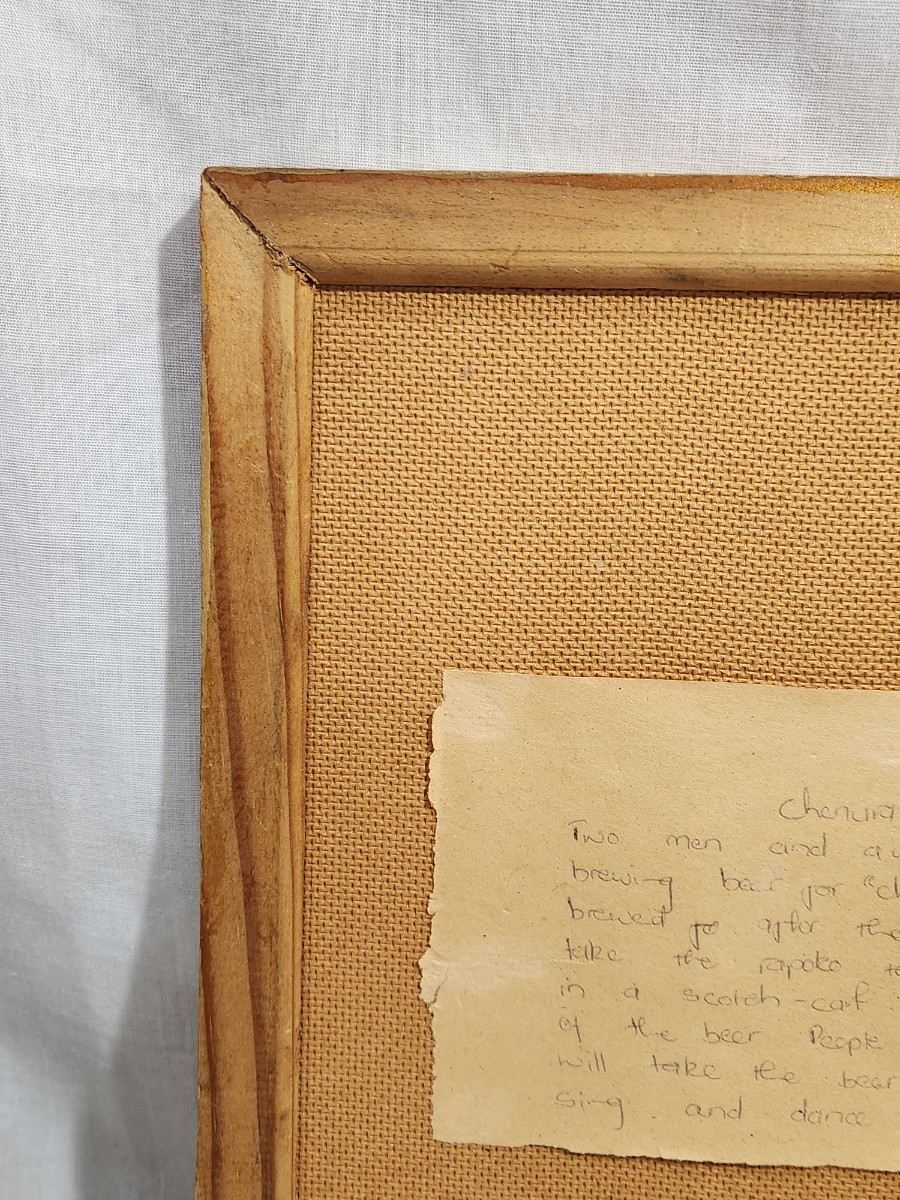 Two men and a
brewing beer for "c
brewed after the
take the rapoko
in a scotch-cart
of the beer People
will take the beer
sing and dance